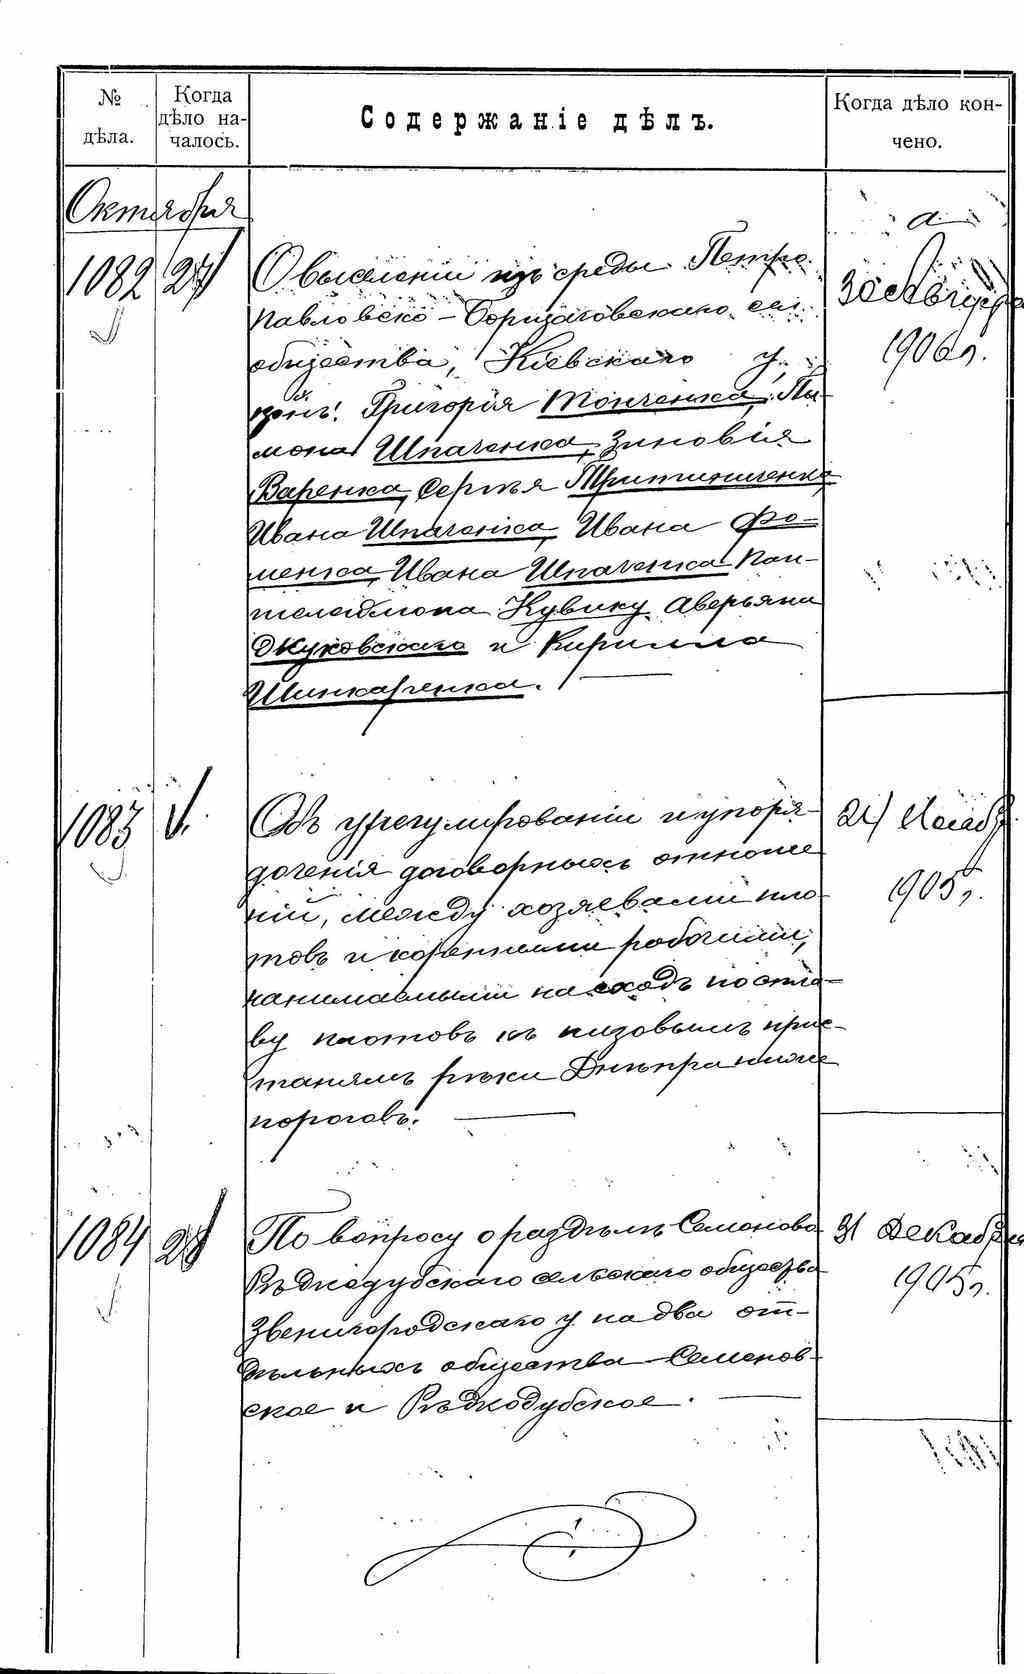 № дѣла.
Когда дѣло на-чалось.
Содержаніе дѣлъ.
Когда дѣло кон-чено.
Октября
1082 27
О выселеніи изъ среды Петро
Павловско-Борщаговскаго сел
общества, Кіевскаго у,
Григорія Тонченка, Пи-
мона Шпаченка, Зиновія
Варенка, Сергѣя
Ивана Шпаченка, Ивана Фо-
менка, Ивана Шпаченка Пан-
телеймона Кувику, Аверьяна
Жуковскаго и Кирилла
Шинкаренка.
30 Августа
1906 г.
1083
Объ урегулированіи и упоря-
доченія договорныхъ отноше
ній, между хозяевами пло-
товъ и коренными рабочими,
нанимаемыми на сходъ по спла-
ву плотовъ къ низовымъ прис-
танямъ рѣки Днѣпра ниже
пороговъ.
24 Ноябр
1905 г.
1084 28
По вопросу о раздѣлѣ Семеново
Рѣдкодубскаго сельскаго общества
Звенигородскаго у на два от-
дѣльныхъ общества-Семенов-
ское и Рѣдкодубское.
31 Декабря
1905 г.